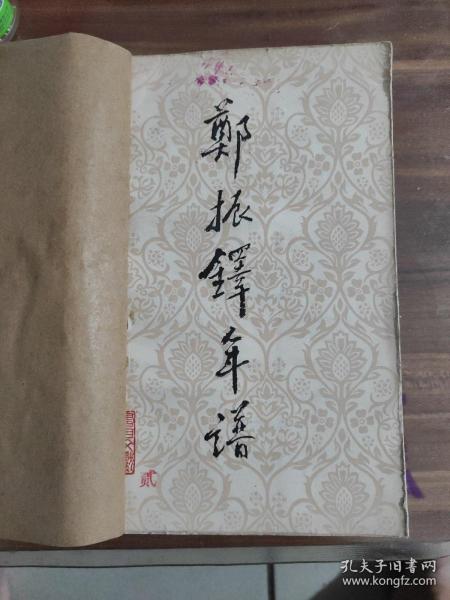 鄭振鐸年譜
貳
孔夫子旧书网
www.kongfz.com